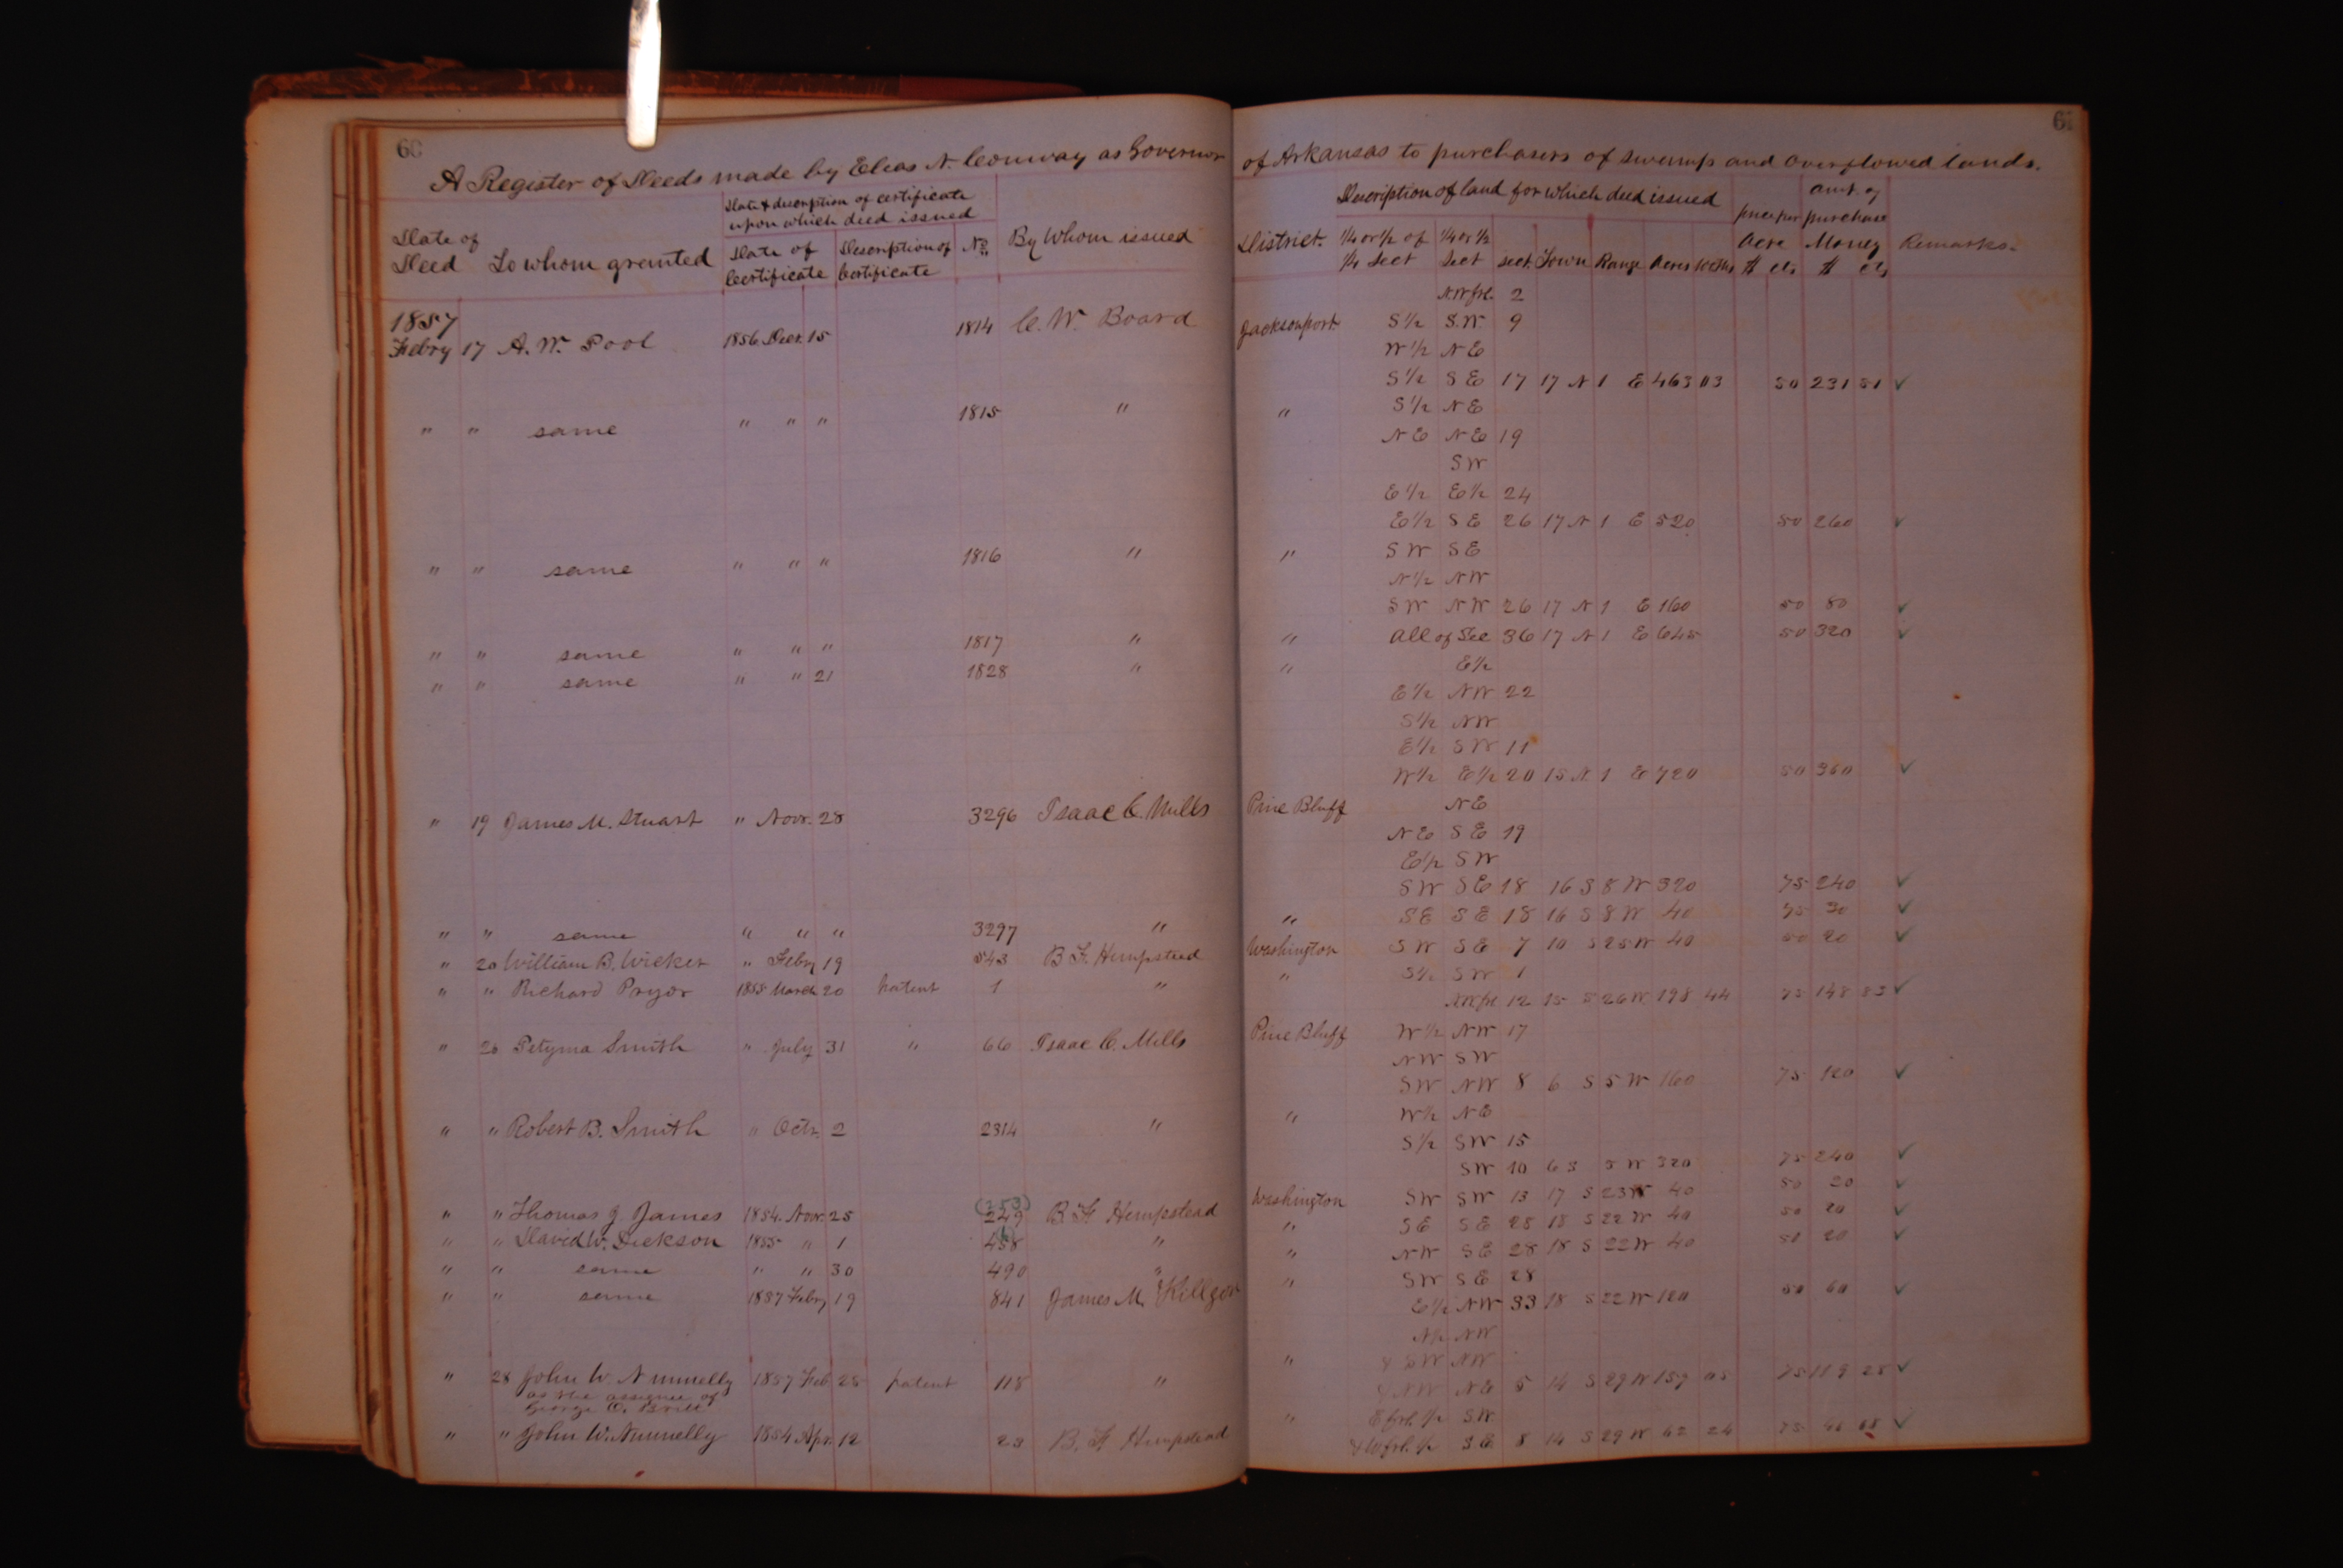 60
A Register of Deeds made by Elias N. Conway as Governor of Arkansas to purchasers of swamp and overflowed lands.
Date of Deed
To whom granted
Date & description of certificate upon which deed issued
Date of Certificate
Description of Certificate
No.
By Whom issued
District.
Description of land for which deed issued
1/4 or 1/2 of 1/4 Sect
1/4 or 1/2 Sect
Sect. Town Range Acres 100ths
price per Acre $ cts
Amt. of purchase Money $ cts
Remarks.
1857
N.W frl. 2
Febry 17 A. W. Pool 1856. Decr. 15 1814 C. W. Board Jacksonport. S 1/2 S.W. 9
W 1/2 N E
S 1/2 S E 17 17 N 1 E 463 03 50 231 51 ✓
" " same " " " 1815 " " S 1/2 N E
N E N E 19
S W
E 1/2 E 1/2 24
E 1/2 S E 26 17 N 1 E 520 50 260 ✓
" " same " " " 1816 " " S W S E
N 1/2 N W
S W N W 26 17 N 1 E 160 50 80 ✓
" " same " " " 1817 " " All of Sec 36 17 N 1 E 645 50 320 ✓
" " same " " 21 1828 " " E 1/2
E 1/2 N W 22
S 1/2 N W
E 1/2 S W 11
W 1/2 E 1/2 20 15 N. 1 E 720 50 360 ✓
" 19 James M. Stuart " Novr. 28 3296 Isaac C. Mills Pine Bluff N E
N E S E 19
E 1/2 S W
S W S E 18 16 S 8 W 320 75 240 ✓
" " same " " " 3297 " " S E S E 18 16 S 8 W 40 75 30 ✓
" 20 William B. Wicker " Febry 19 543 B. F. Hempstead Washington S W S E 7 10 S 25 W 40 50 20 ✓
" " Richard Pryor 1855 March 20 Patent 1 " " S 1/2 S W 1
N.W. frl 12 15 S 26 W. 198 44 75 148 83 ✓
" 26 Smith " July 31 " 66 Isaac C. Mills Pine Bluff W 1/2 N W 17
N W S W
S W N W 8 6 S 5 W 160 75 120 ✓
" " Robert B. Smith " Octr. 2 2314 " " W 1/2 N E
S 1/2 S W 15
S W 10 6 S 5 W 320 75 240 ✓
(253)
" " Thomas J. James 1854. Novr. 25 249 B. F. Hempstead Washington S W S W 13 17 S 23 W 40 50 20 ✓
" " David W. Dickson 1855 " 1 458 " " S E S E 28 18 S 22 W 40 50 20 ✓
" " same " " 30 490 " " N W S E 28 18 S 22 W 40 50 20 ✓
" " same 1857 Febry 19 841 James M. Killgore " S W S E 28
E 1/2 N W 33 18 S 22 W 120 50 60 ✓
N 1/2 N W
" 28 John W. Nunnelly 1857 Feb 28 patent 118 " " & S W N W
as the assignee of
George C. Britt
& N W N E 5 14 S 29 W 159 05 75 119 28 ✓
" " John W. Nunnelly 1854 Apr. 12 23 B. F. Hempstead " E frl. 1/2 S.W.
& W frl. 1/2 S E 8 14 S 29 W 62 24 75 46 68 ✓